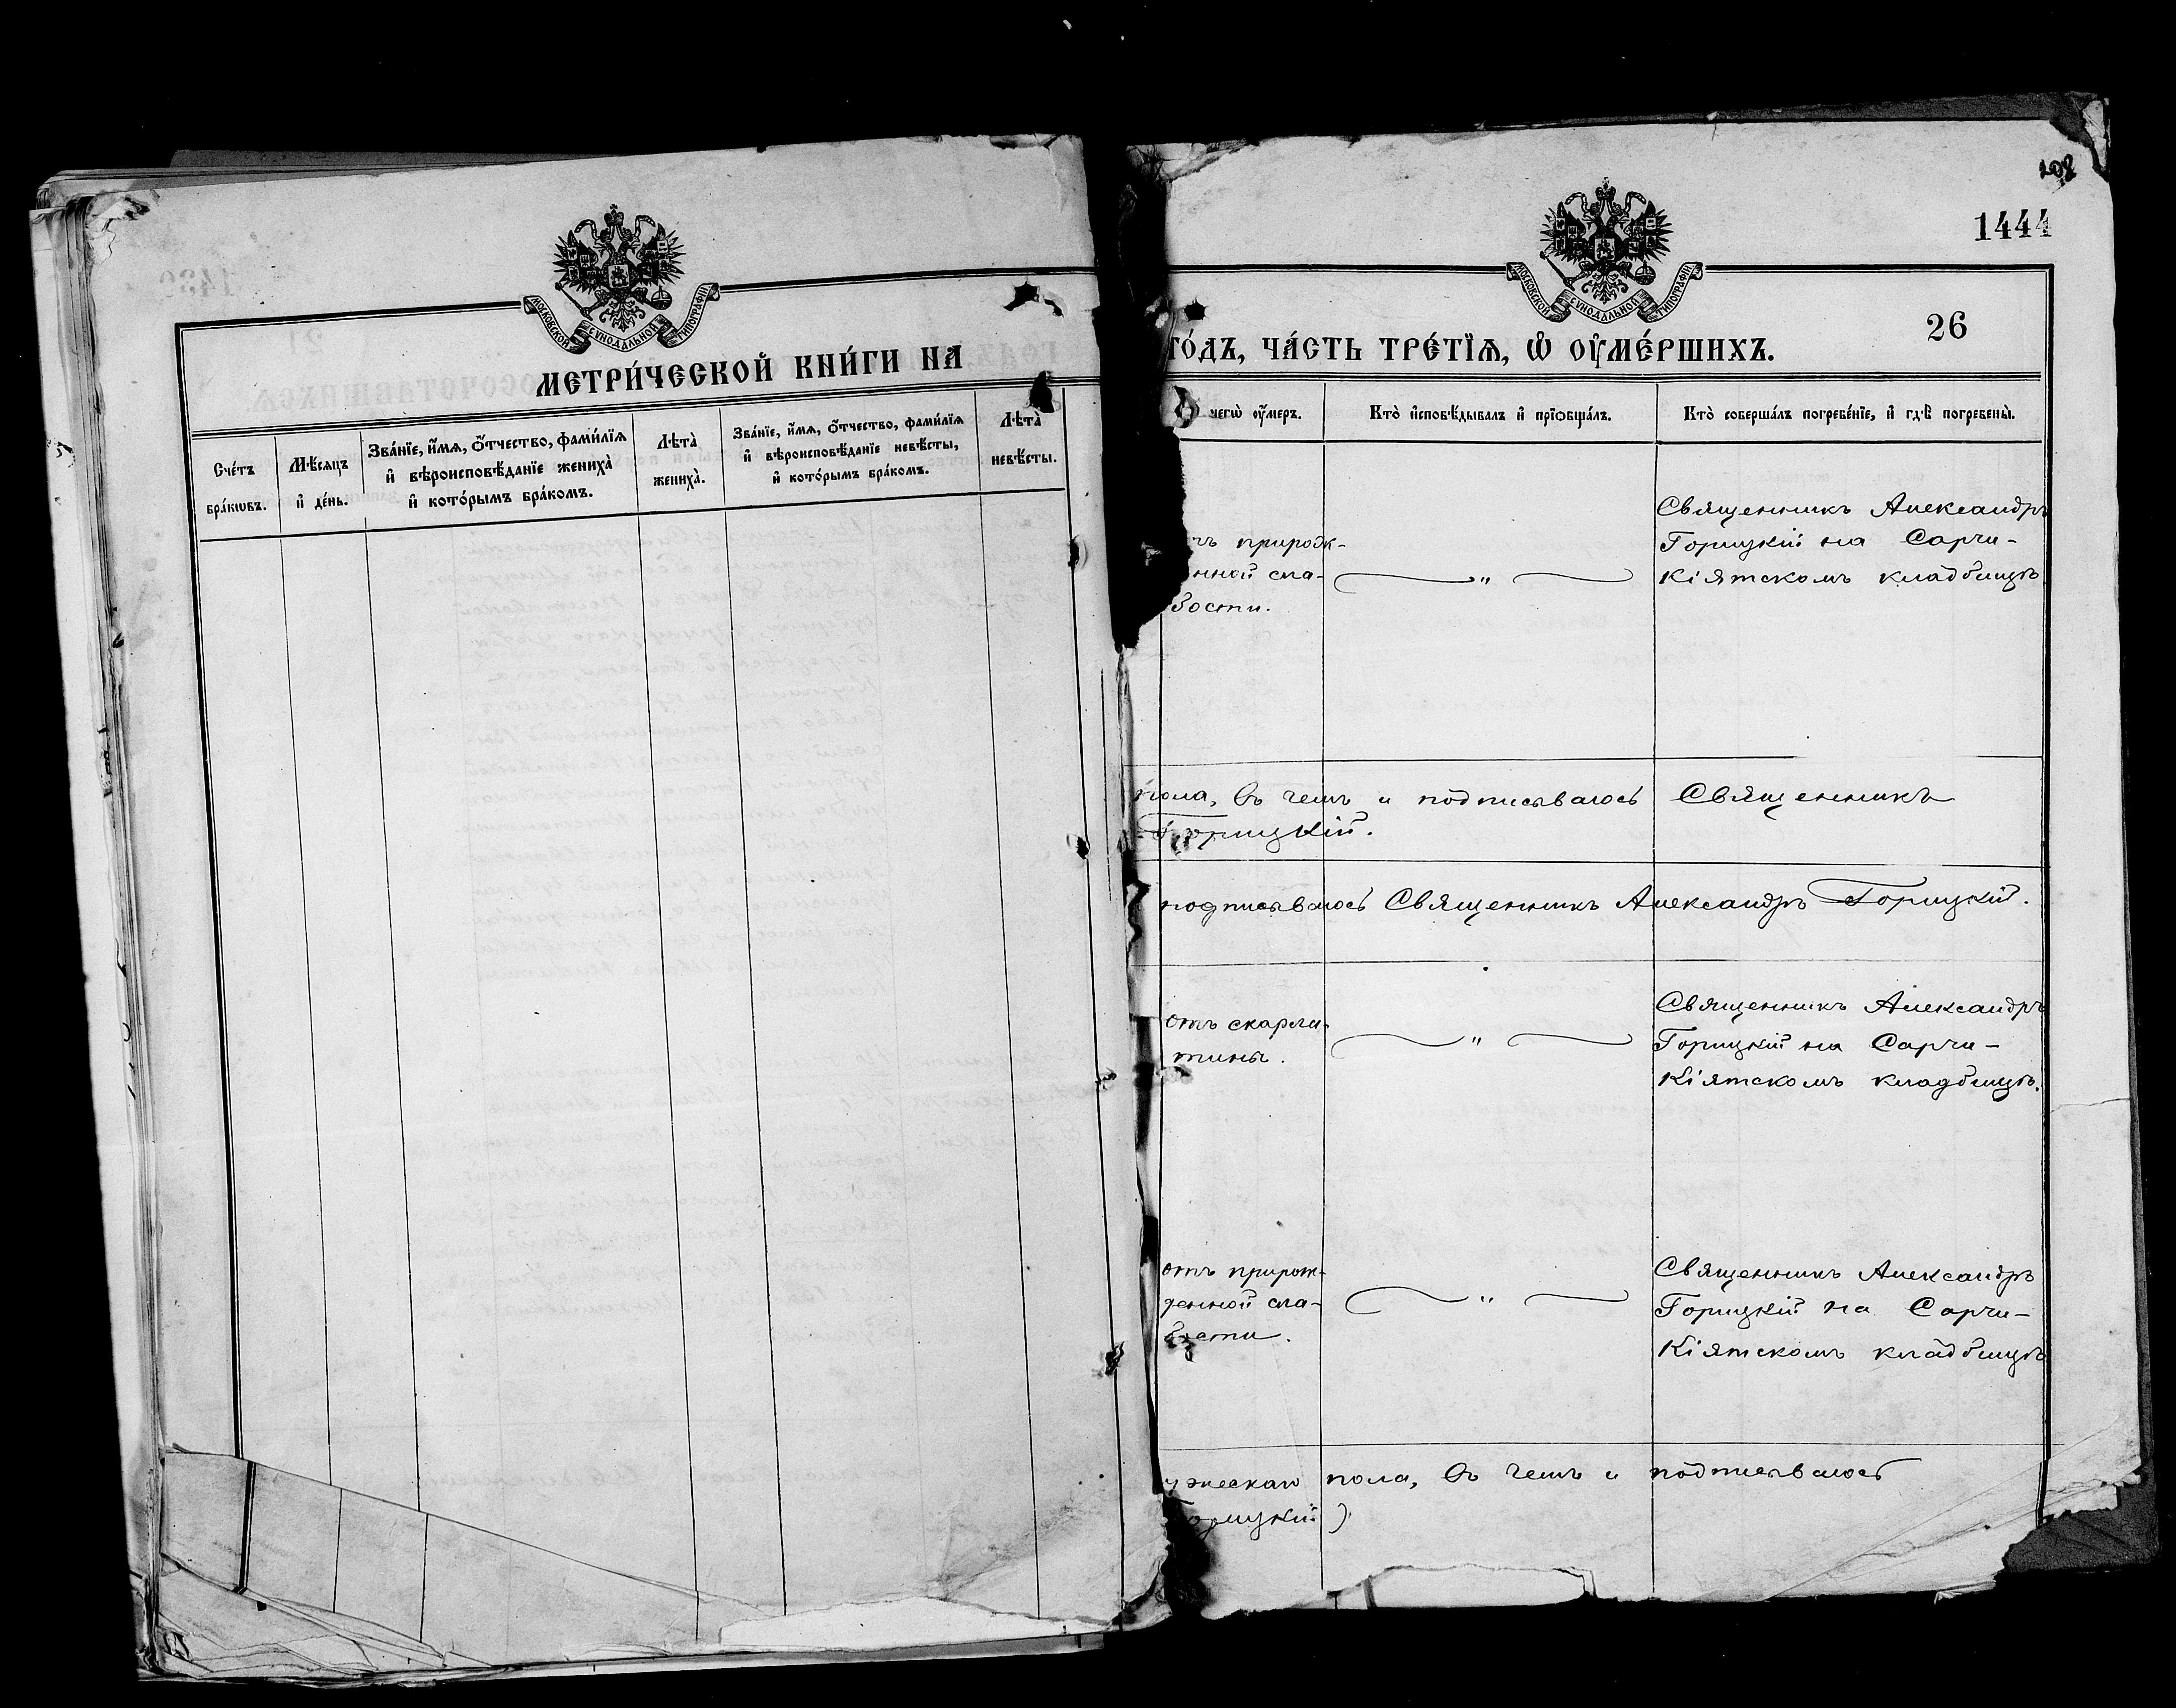 МОСКОВСКОЙ СѴНОДАЛЬНОЙ ТИПОГРАФІИ
МЕТРИ́ЧЕСКОЙ КНИ́ГИ НА
Сче́тъ
бра́кѡвъ.
Мѣ́сяцъ
и҆ де́нь.
Зва́нїе, и҆́мѧ, ѻ҆́тчество, фами́лїѧ
и҆ вѣроисповѣ́данїе жениха̀
и҆ кото́рымъ бра́комъ.
Лѣта̀
жениха̀.
Зва́нїе, и҆́мѧ, ѻ҆́тчество, фами́лїѧ
и҆ вѣроисповѣ́данїе невѣ́сты,
и҆ кото́рымъ бра́комъ.
Лѣта̀
невѣ́сты.
208
1444
МОСКОВСКОЙ СѴНОДАЛЬНОЙ ТИПОГРАФІИ
26
ГО́ДЪ, ЧА́СТЬ ТРЕ́ТЇѦ, Ѡ҆ ОУ҆МЕ́РШИХЪ.
чегѡ̀ оу҆́меръ.
Кто̀ и҆сповѣ́дывалъ и҆ прїѡбща́лъ.
Кто̀ соверша́лъ погребе́нїе, и҆ гдѣ̀ погребены̀.
тъ природж-
нной сла-
бости.
— " —
Священникъ Александръ
Горицкій на Сарчи-
Кіятскомъ кладбищѣ
пола, въ чемъ и подписываюсь Священникъ
Горицкій.
подписываюсь Священникъ Александръ Горицкій.
отъ скарла-
тины.
— " —
Священникъ Александръ
Горицкій на Сарчи-
Кіятскомъ кладбищѣ.
отъ прирож-
денной сла-
бости.
— " —
Священникъ Александръ
Горицкій на Сарчи-
Кіятскомъ кладбищѣ
ужескаго пола, въ чемъ и подписываюсь
Горицкій)